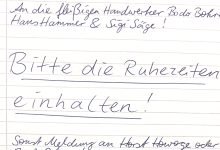 An die fleißigen Handwerker Bodo Bohrer
Hans Hammer & Sigi Säge!
Bitte die Ruhezeiten
einhalten!
Sonst Meldung an Horst Howoge oder